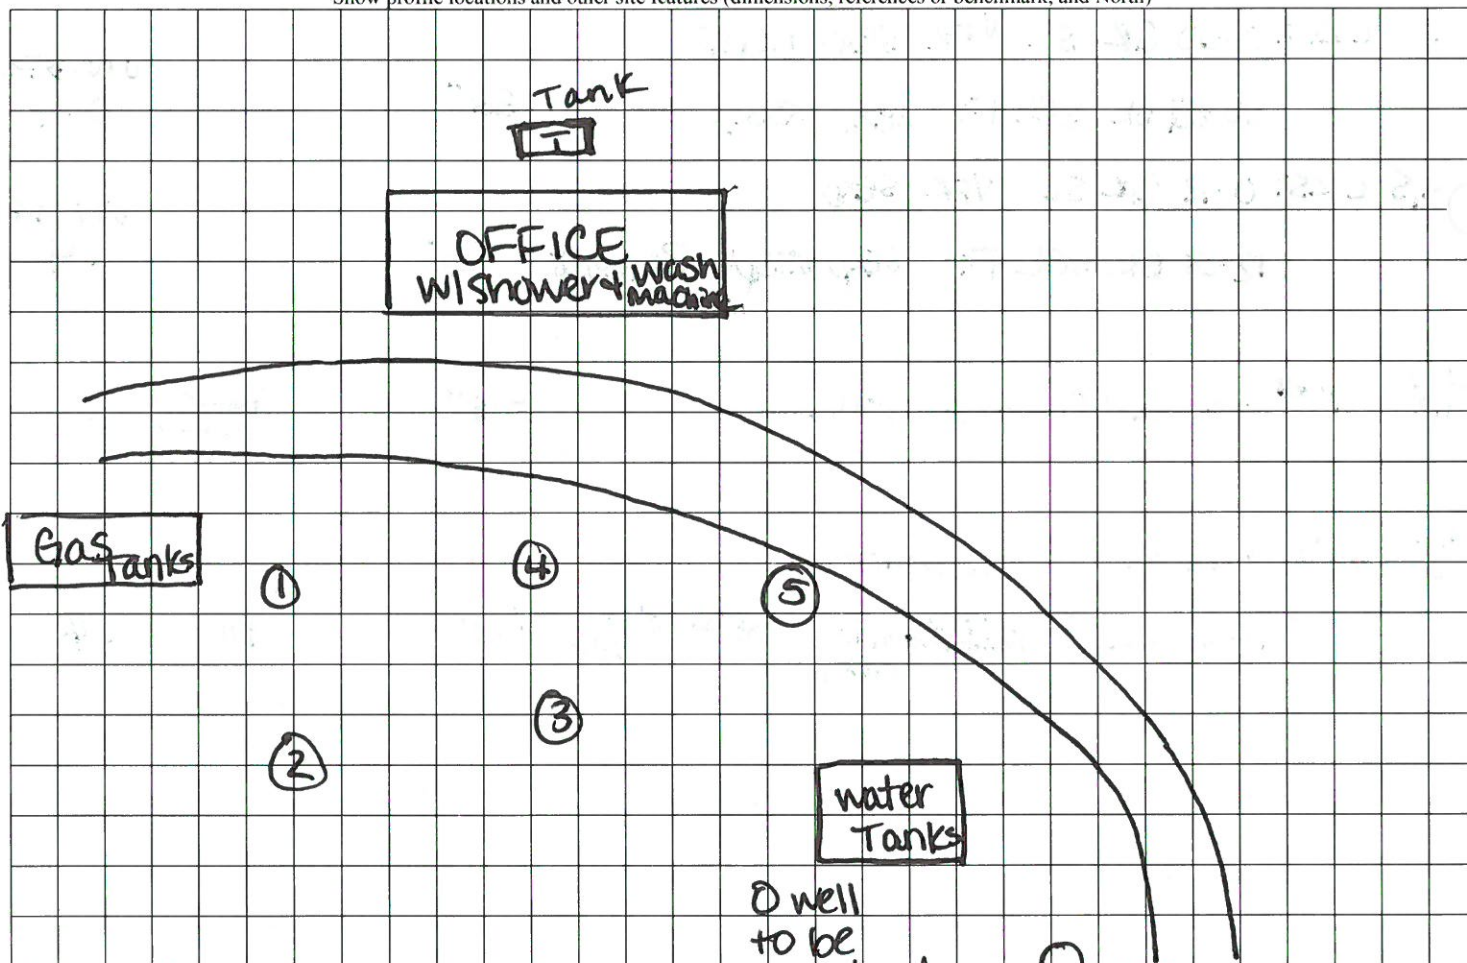 Show profile locations and other site features (dimensions, references or benchmark, and North)
Tank
T
OFFICE
W/Shower + wash
machine
Gas Tanks
1
4
5
3
2
water
Tanks
O well
to be